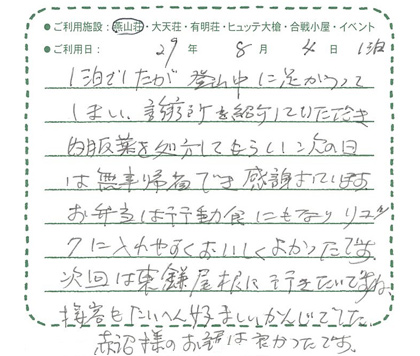 ●ご利用施設：燕山荘・大天荘・有明荘・ヒュッテ大槍・合戦小屋・イベント
●ご利用日： 29 年 8 月 4 日 1泊
1泊でしたが登山中に足がつって
しまい、診療所を紹介していただき
市販薬を処方してもらい次の日
は無事帰宅でき感謝しています
お弁当は行動食にもなりリュッ
クに入れやすくおいしくよかったです。
次回は東鎌尾根に行きたいですね。
接客もたいへん好ましいかんじでした。
赤沼様のお話は良かったです。